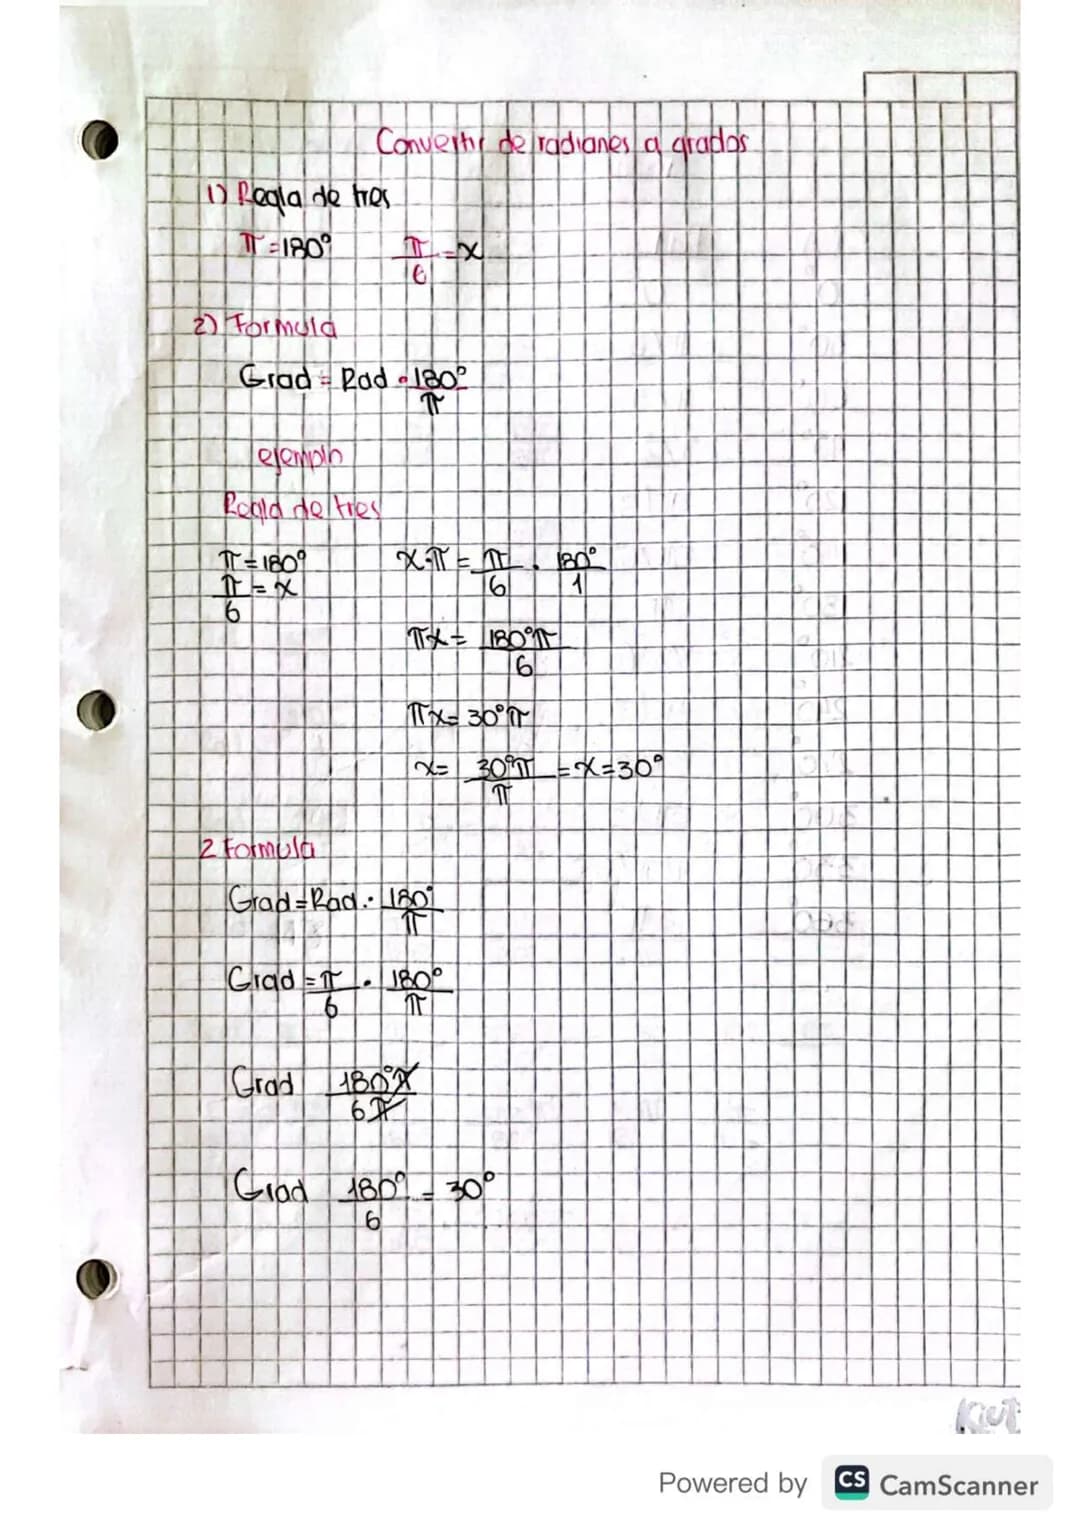 Convertir de radianes a grados
1) Regla de tres
π = 180° π/6 = x
2) Formula
Grad = Rad · 180°/π
ejemplo
Regla de tres
π = 180° x·π = π/6 · 180°/1
π/6 = x
πx = 180°π/6
πx = 30°π
x = 30°π/π = x = 30°
2 Formula
Grad = Rad · 180°/π
Grad = π/6 · 180°/π
Grad 180°π/6π
Grad 180°/6 = 30°
Kiut
Powered by CS CamScanner